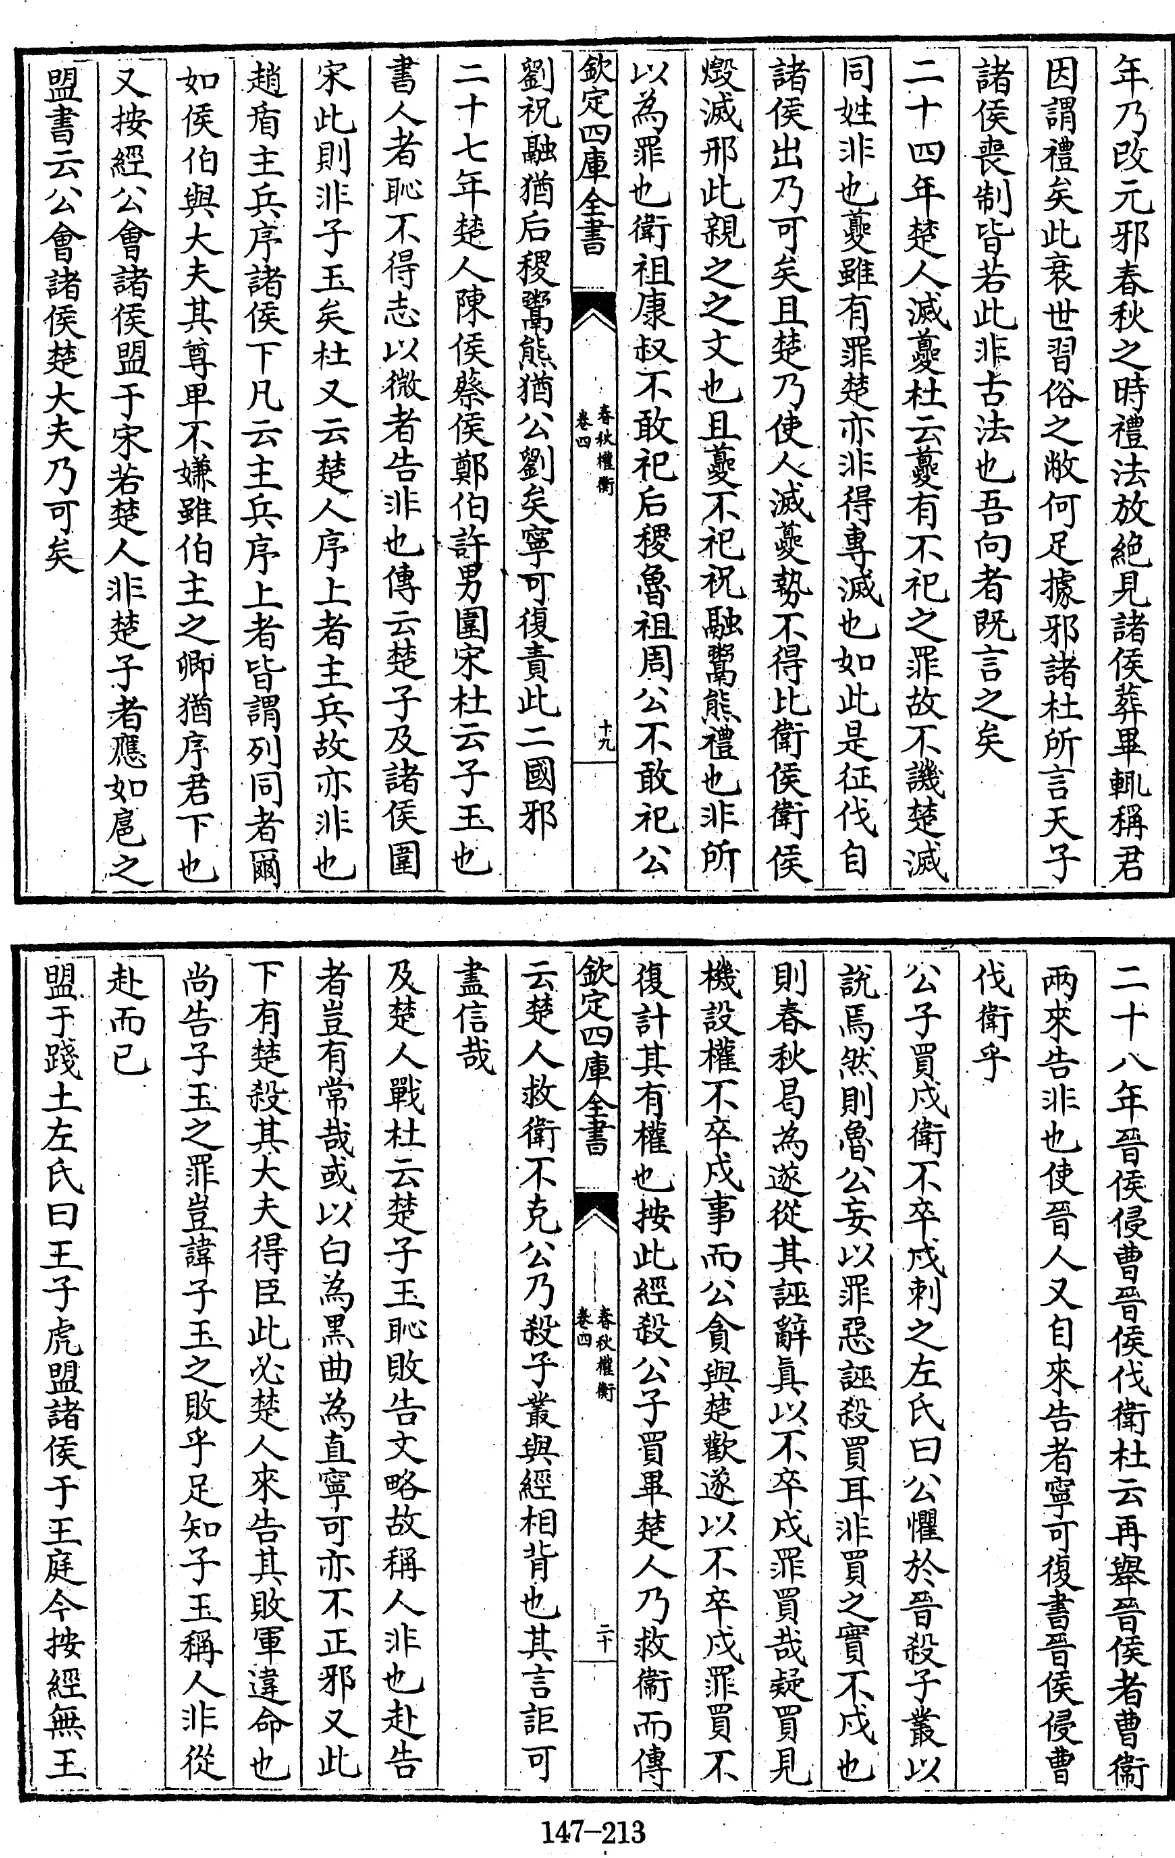 年乃改元邪春秋之時禮法放絕見諸侯葬畢輒稱君
因謂禮矣此衰世習俗之敝何足據邪諸杜所言天子
諸侯喪制皆若此非古法也吾向者既言之矣
二十四年楚人滅夔杜云夔有不祀之罪故不譏楚滅
同姓非也夔雖有罪楚亦非得專滅也如此是征伐自
諸侯出乃可矣且楚乃使人滅夔勢不得比衛侯衛侯
燬滅邢此親之之文也且夔不祀祝融鬻熊禮也非所
以為罪也衛祖康叔不敢祀后稷魯祖周公不敢祀公
欽定四庫全書
春秋權衡
卷四
十九
劉祝融猶后稷鬻熊猶公劉矣寧可復責此二國邪
二十七年楚人陳侯蔡侯鄭伯許男圍宋杜云子玉也
書人者恥不得志以微者告非也傳云楚子及諸侯圍
宋此則非子玉矣杜又云楚人序上者主兵故亦非也
趙盾主兵序諸侯下凡云主兵序上者皆謂列同者爾
如侯伯與大夫其尊卑不嫌雖伯主之卿猶序君下也
又按經公會諸侯盟于宋若楚人非楚子者應如扈之
盟書云公會諸侯楚大夫乃可矣
二十八年晉侯侵曹晉侯伐衛杜云再舉晉侯者曹衛
兩來告非也使晉人又自來告者寧可復書晉侯侵曹
伐衛乎
公子買戍衛不卒戍刺之左氏曰公懼於晉殺子叢以
說焉然則魯公妄以罪惡誣殺買耳非買之實不戍也
則春秋曷為遂從其誣辭真以不卒戍罪買哉疑買見
機設權不卒戍事而公貪與楚歡遂以不卒戍罪買不
復計其有權也按此經殺公子買畢楚人乃救衛而傳
欽定四庫全書
春秋權衡
卷四
二十
云楚人救衛不克公乃殺子叢與經相背也其言詎可
盡信哉
及楚人戰杜云楚子玉恥敗告文略故稱人非也赴告
者豈有常哉或以白為黑曲為直寧可亦不正邪又此
下有楚殺其大夫得臣此必楚人來告其敗軍違命也
尚告子玉之罪豈諱子玉之敗乎足知子玉稱人非從
赴而已
盟于踐土左氏曰王子虎盟諸侯于王庭今按經無王
147-213